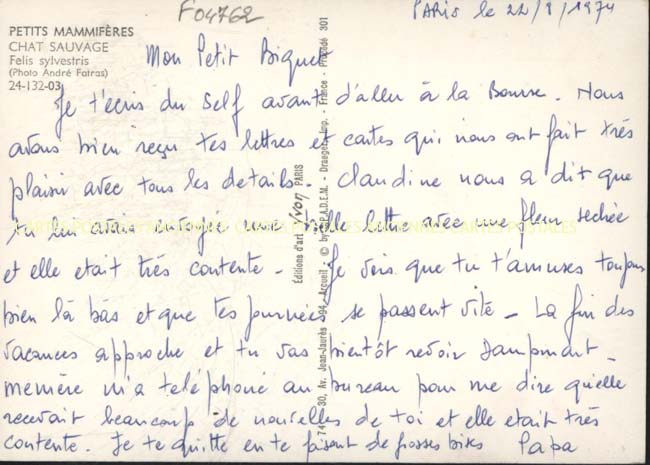 F04762
PARIS le 22/8/1974
PETITS MAMMIFÈRES
CHAT SAUVAGE
Felis sylvestris
(Photo André Fatras)
24-132-03
Mon Petit Biquet
Je t'écris du Self avant d'aller à la Bourse. Nous
avons bien reçu tes lettres et cartes qui nous ont fait très
plaisir avec tous les details. Claudine nous a dit que
tu lui avais envoyé une belle lettre avec une fleur sechée
et elle etait très contente - Je vois que tu t'amuses toujours
bien là bas et que tes journées se passent vite - La fin des
vacances approche et tu vas bientôt revoir
memère m'a téléphoné au bureau pour me dire qu'elle
recevait beaucoup de nouvelles de toi et elle etait très
contente. Je te quitte en te faisant de grosses bises Papa
Éditions d'art Yvon PARIS
30, Av. Jean-Jaurès 94 Arcueil - © by S.P.A.D.E.M. - Draeger, Imp. - France - Procédé 301